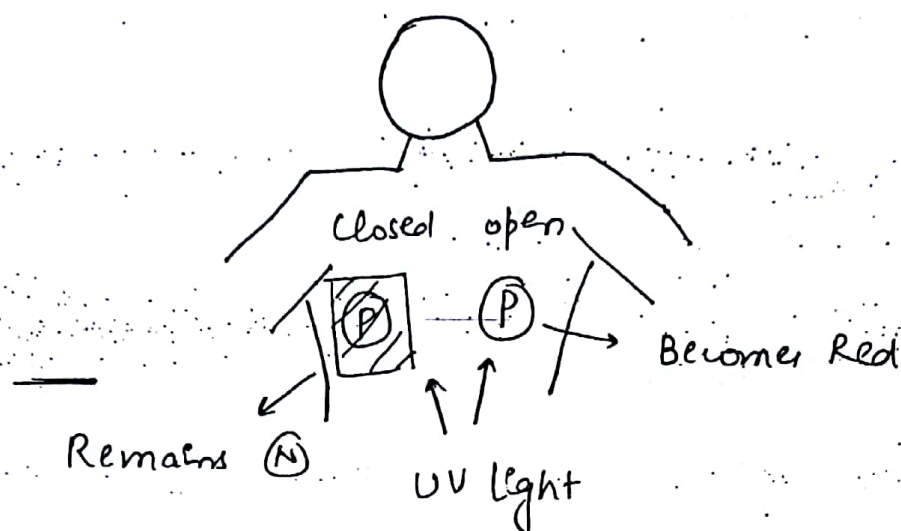 Closed open
P P
Becomes Red
Remains N
UV light